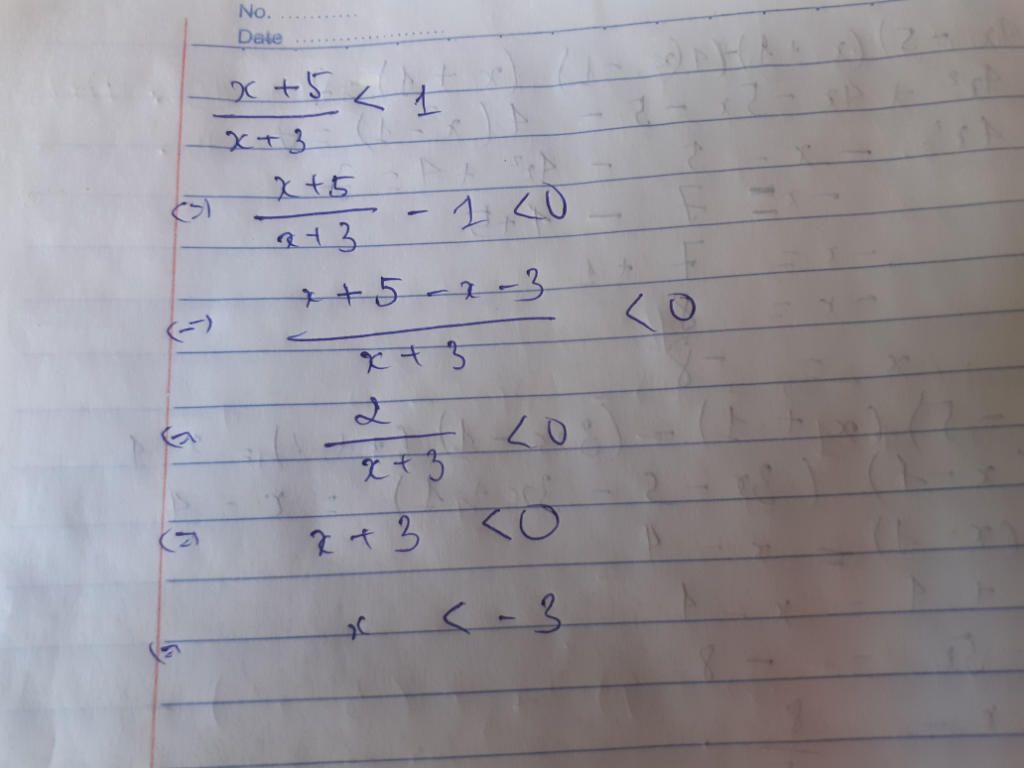 No. ............
Date ......................
x + 5 / x + 3 < 1
(=) x + 5 / x + 3 - 1 < 0
(=) x + 5 - x - 3 / x + 3 < 0
(=) 2 / x + 3 < 0
(=) x + 3 < 0
(=) x < - 3